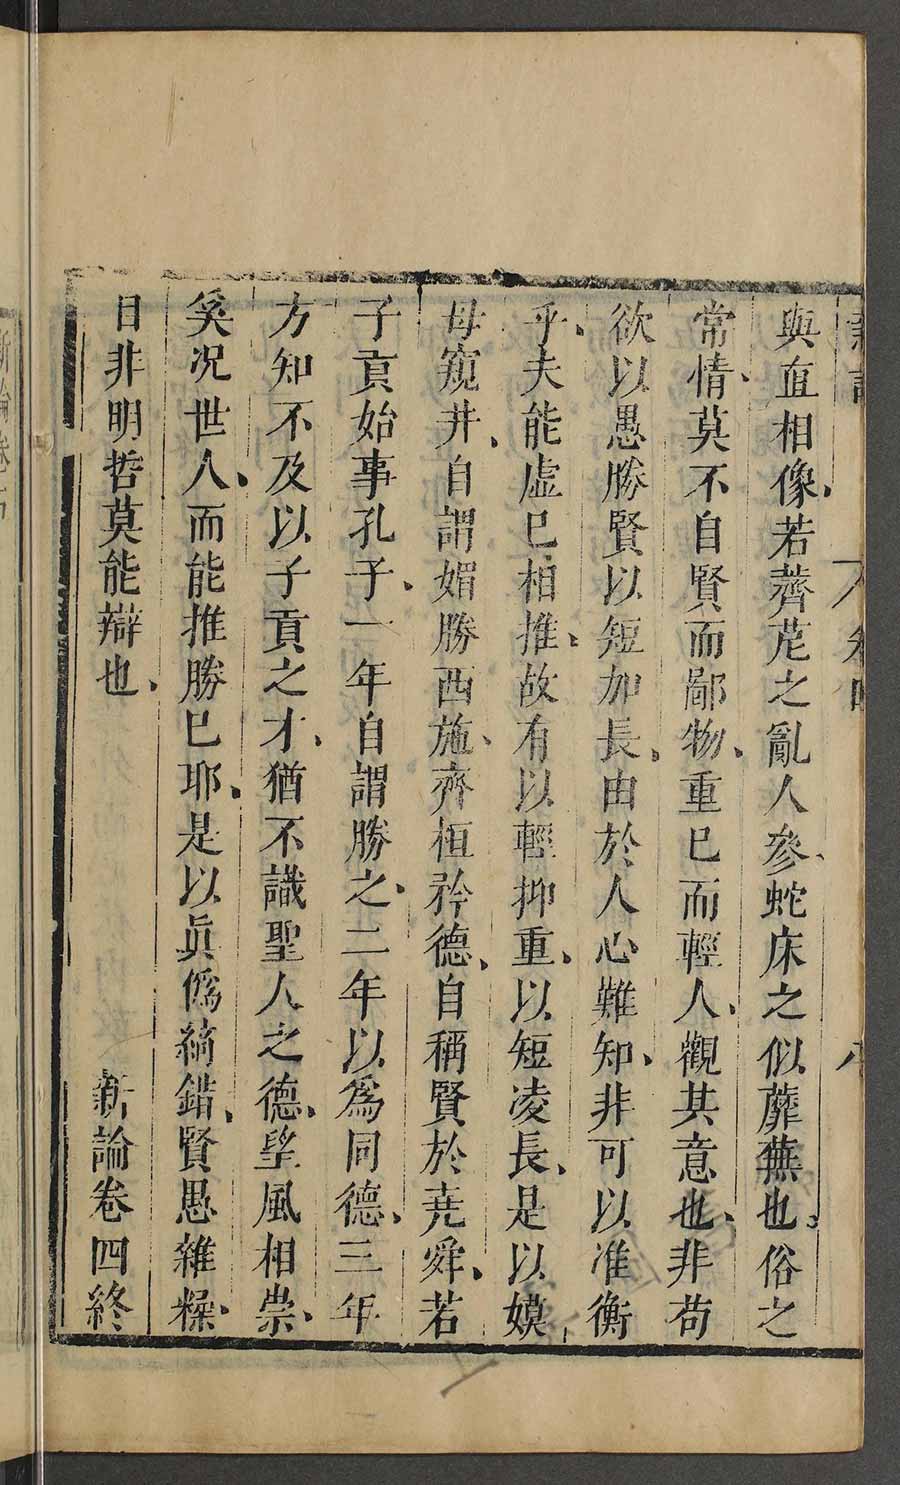 與直相像若薺苨之亂人參蛇床之似蘼蕪也俗之
常情莫不自賢而鄙物重已而輕人觀其意也非苟
欲以愚勝賢以短加長由於人心難知非可以准衡
乎夫能虛已相推故有以輕抑重以短凌長是以嫫
母窺井自謂媚勝西施齊桓矜德自稱賢於堯舜若
子貢始事孔子一年自謂勝之二年以爲同德三年
方知不及以子貢之才猶不識聖人之德望風相崇
奚况世人而能推勝已耶是以眞僞綺錯賢愚雜糅
自非明哲莫能辯也 新論卷四終